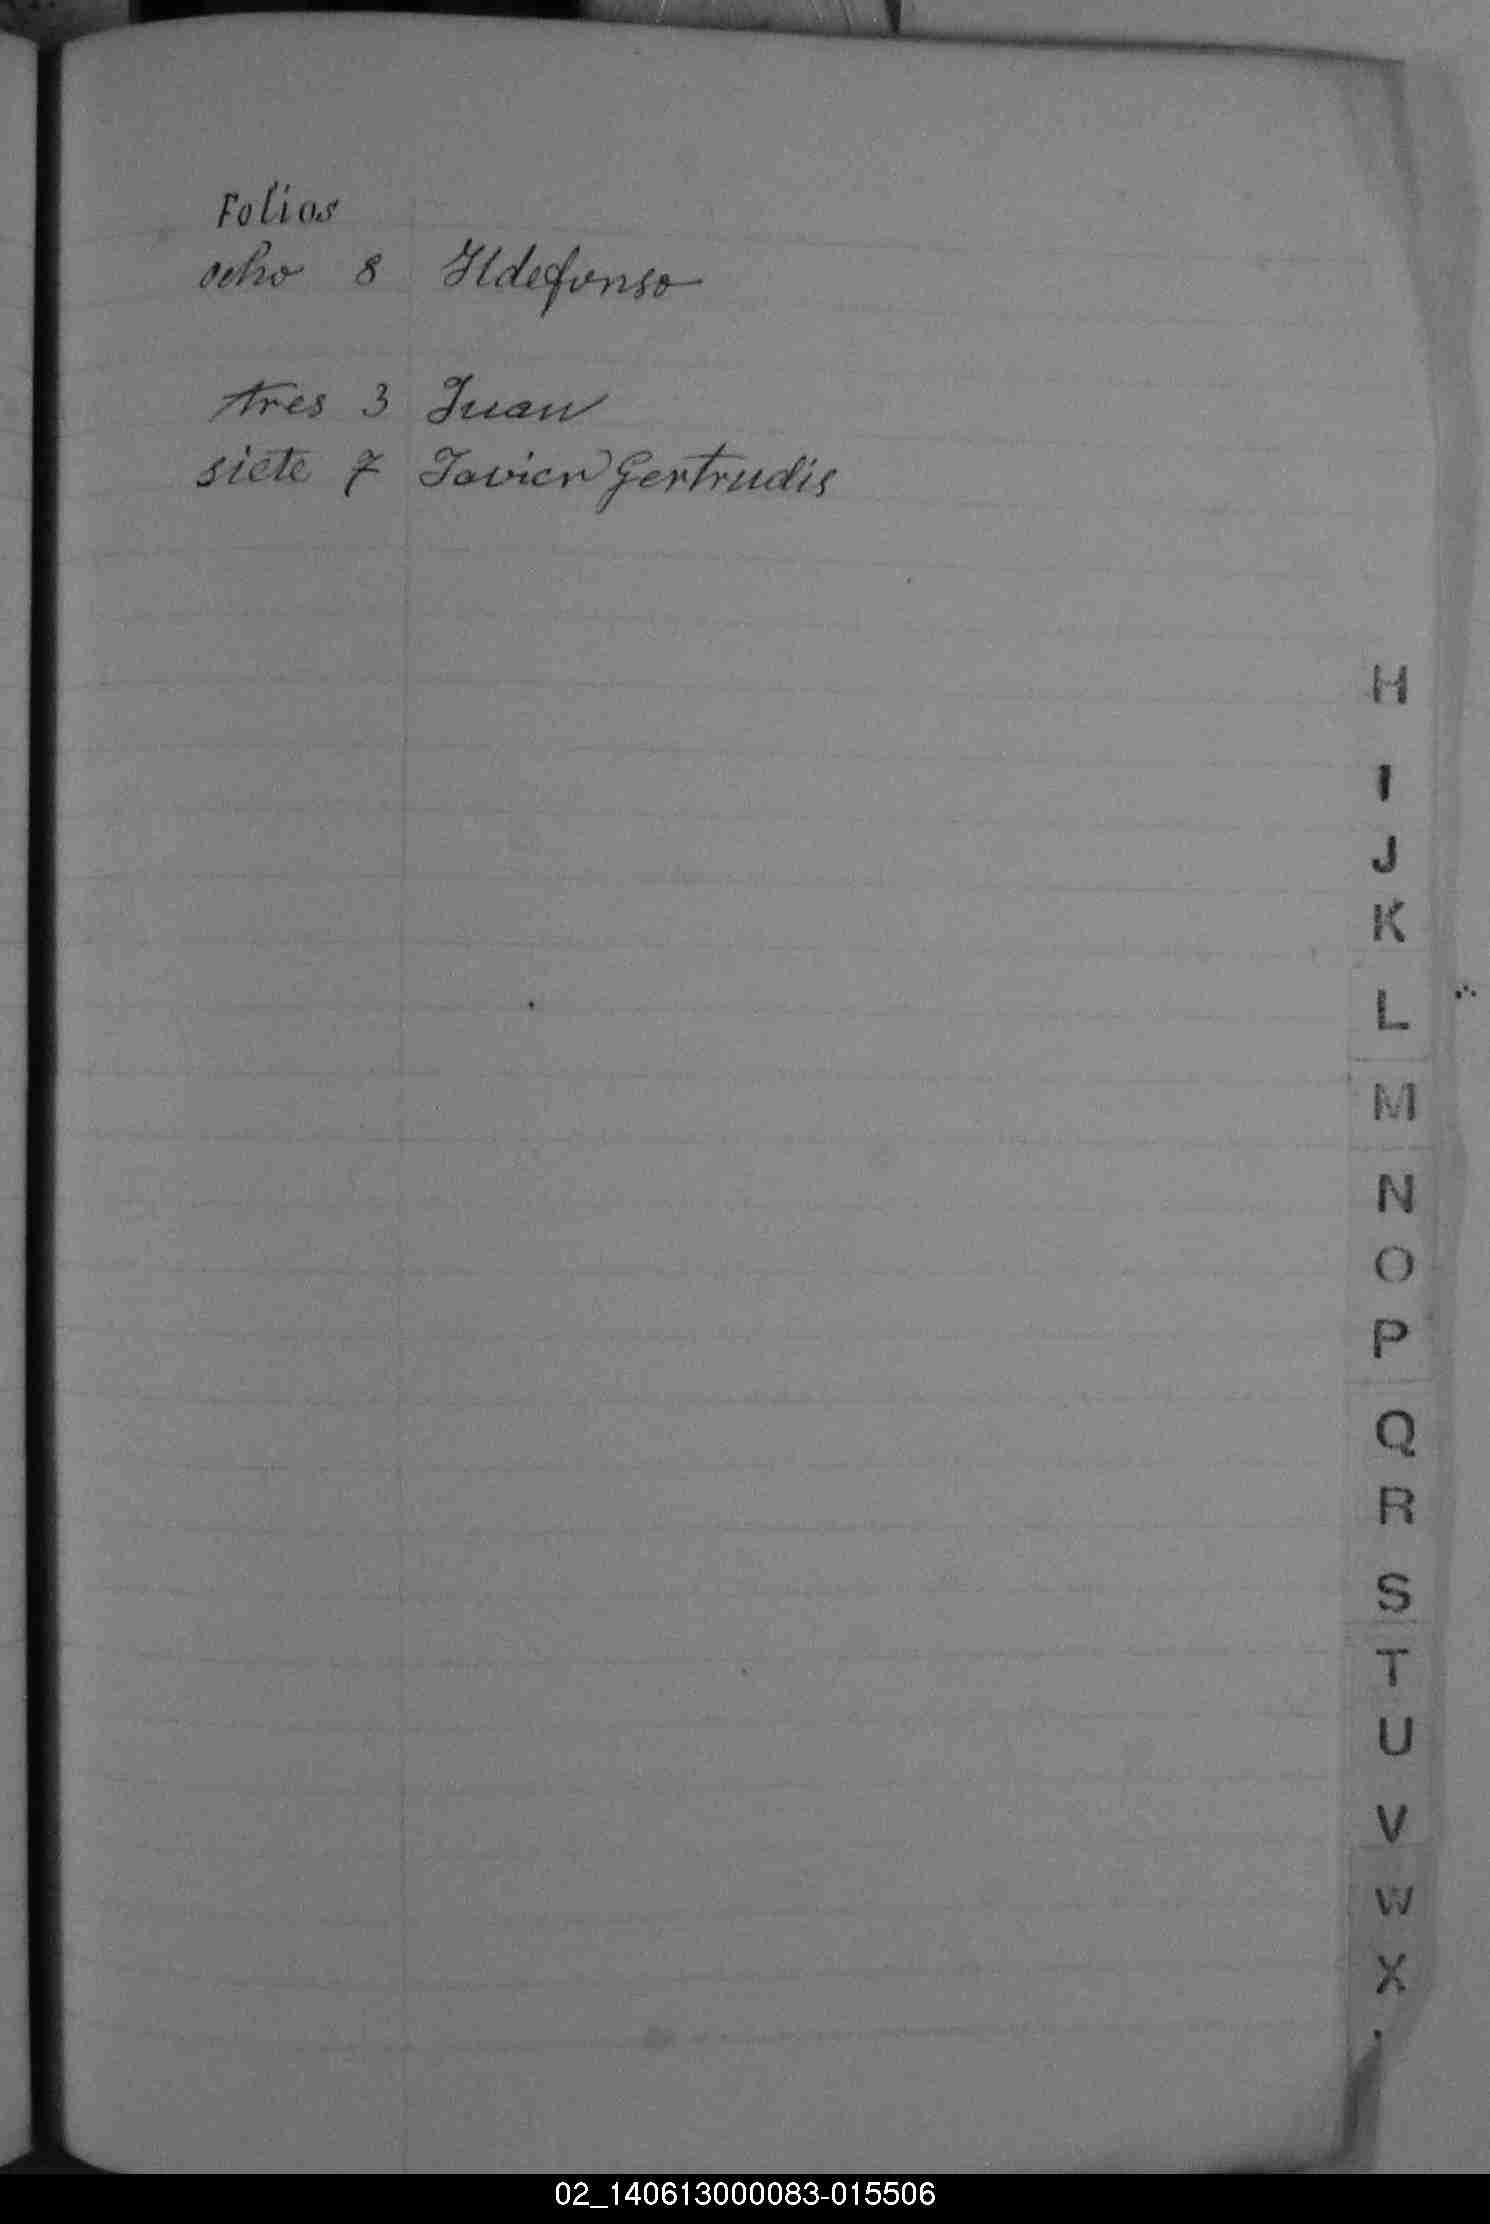 Folios
ocho 8 Ildefonso
tres 3 Juan
siete 7 Javier Gertrudis
H
I
J
K
L
M
N
O
P
Q
R
S
T
U
V
W
X
02_140613000083-015506